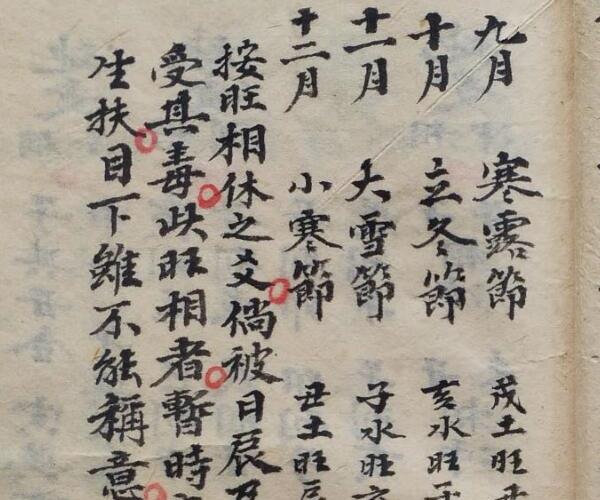 九月 寒露節 戌土旺
十月 立冬節 亥水旺
十一月 大雪節 子水旺
十二月 小寒節 丑土旺
按旺相休之爻倘被日辰
受其毒此旺相者暫時
生扶目下雖不能稱意